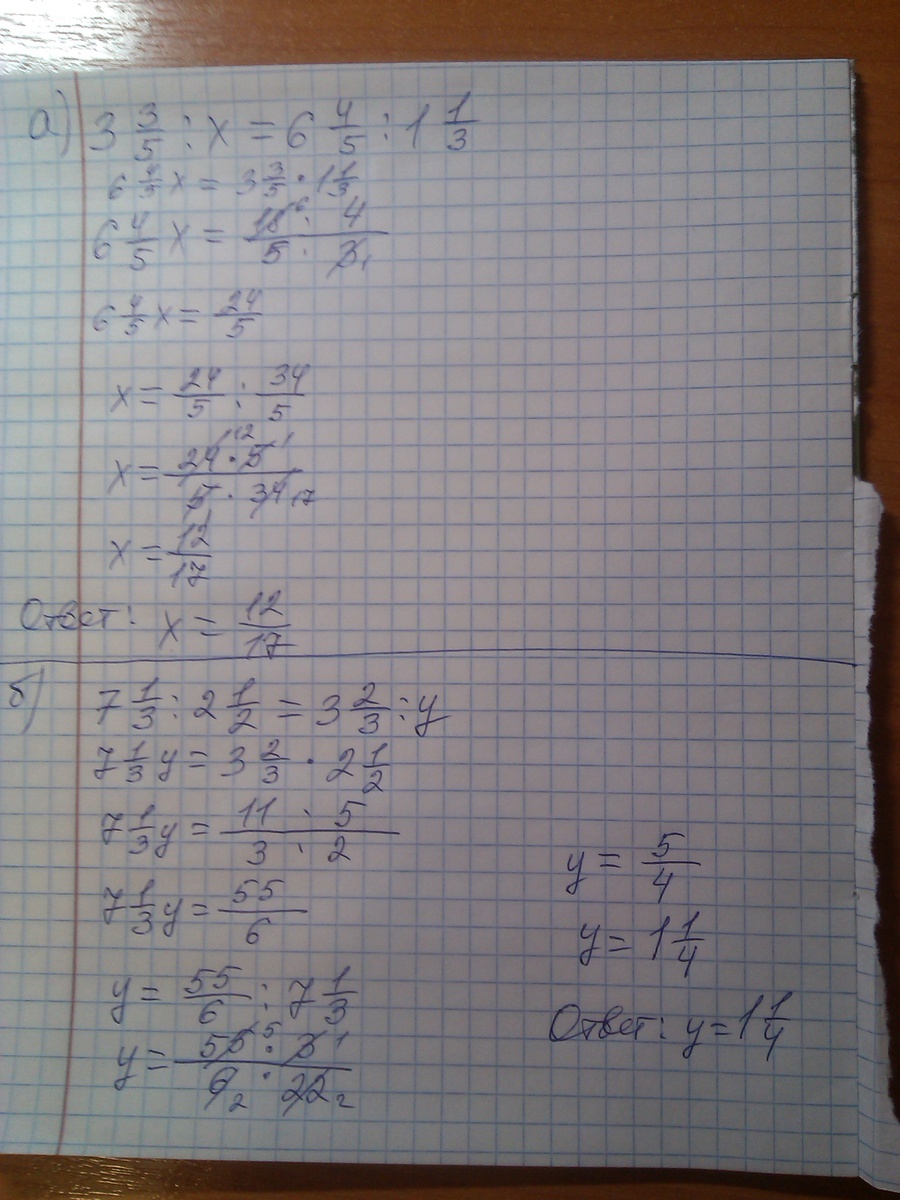 а) 3 3/5 : x = 6 4/5 : 1 1/3
6 4/5 x = 3 3/5 · 1 1/3
6 4/5 x = 18 6 · 4 / 5 · 3 1
6 4/5 x = 24/5
x = 24/5 : 34/5
x = 24 12 · 5 1 / 5 1 · 34 17
x = 12/17
Ответ: x = 12/17
б) 7 1/3 : 2 1/2 = 3 2/3 : y
7 1/3 y = 3 2/3 · 2 1/2
7 1/3 y = 11 · 5 / 3 · 2
7 1/3 y = 55/6
y = 55/6 : 7 1/3
y = 55 5 · 3 1 / 6 2 · 22 2
y = 5/4
y = 1 1/4
Ответ: y = 1 1/4